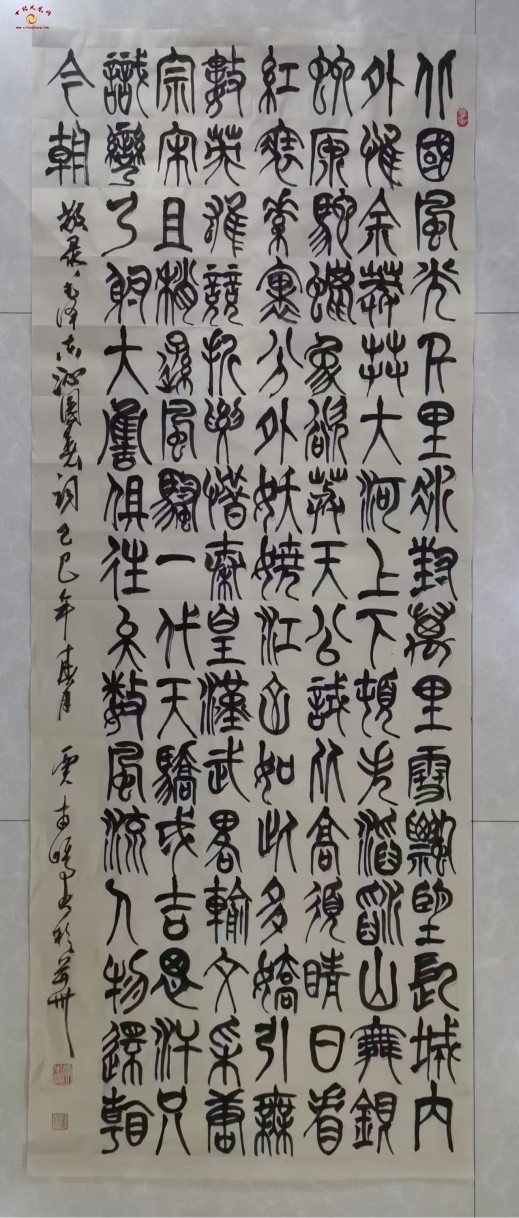 北國風光千里冰封萬里雪飄望長城內
外惟余莽莽大河上下頓失滔滔山舞銀
蛇原馳蠟象欲與天公試比高須晴日看
紅裝素裹分外妖嬈江山如此多嬌引無
數英雄競折腰惜秦皇漢武略輸文采唐
宗宋祖稍遜風騷一代天驕成吉思汗只
識彎弓射大雕俱往矣數風流人物還看
今朝 敬录毛泽东沁園春詞乙巳年春月 书於蘭州